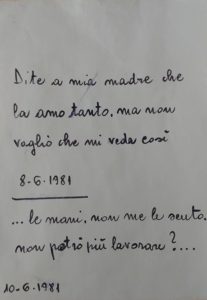 Dite a mia madre che
la amo tanto, ma non
voglio che mi veda così
8-6-1981
...le mani, non me le sento,
non potrò più lavorare?...
10-6-1981